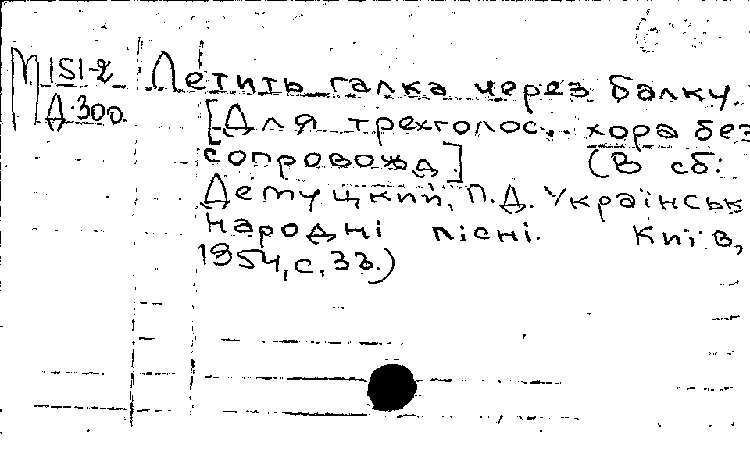 М 151-2 Летить галка через балку.
Д.300. [Для трехголос.. хора без
сопровожд] (В сб:
Демуцкий, П.Д. Українськ
народні пісні. Київ,
1954, с. 33.)